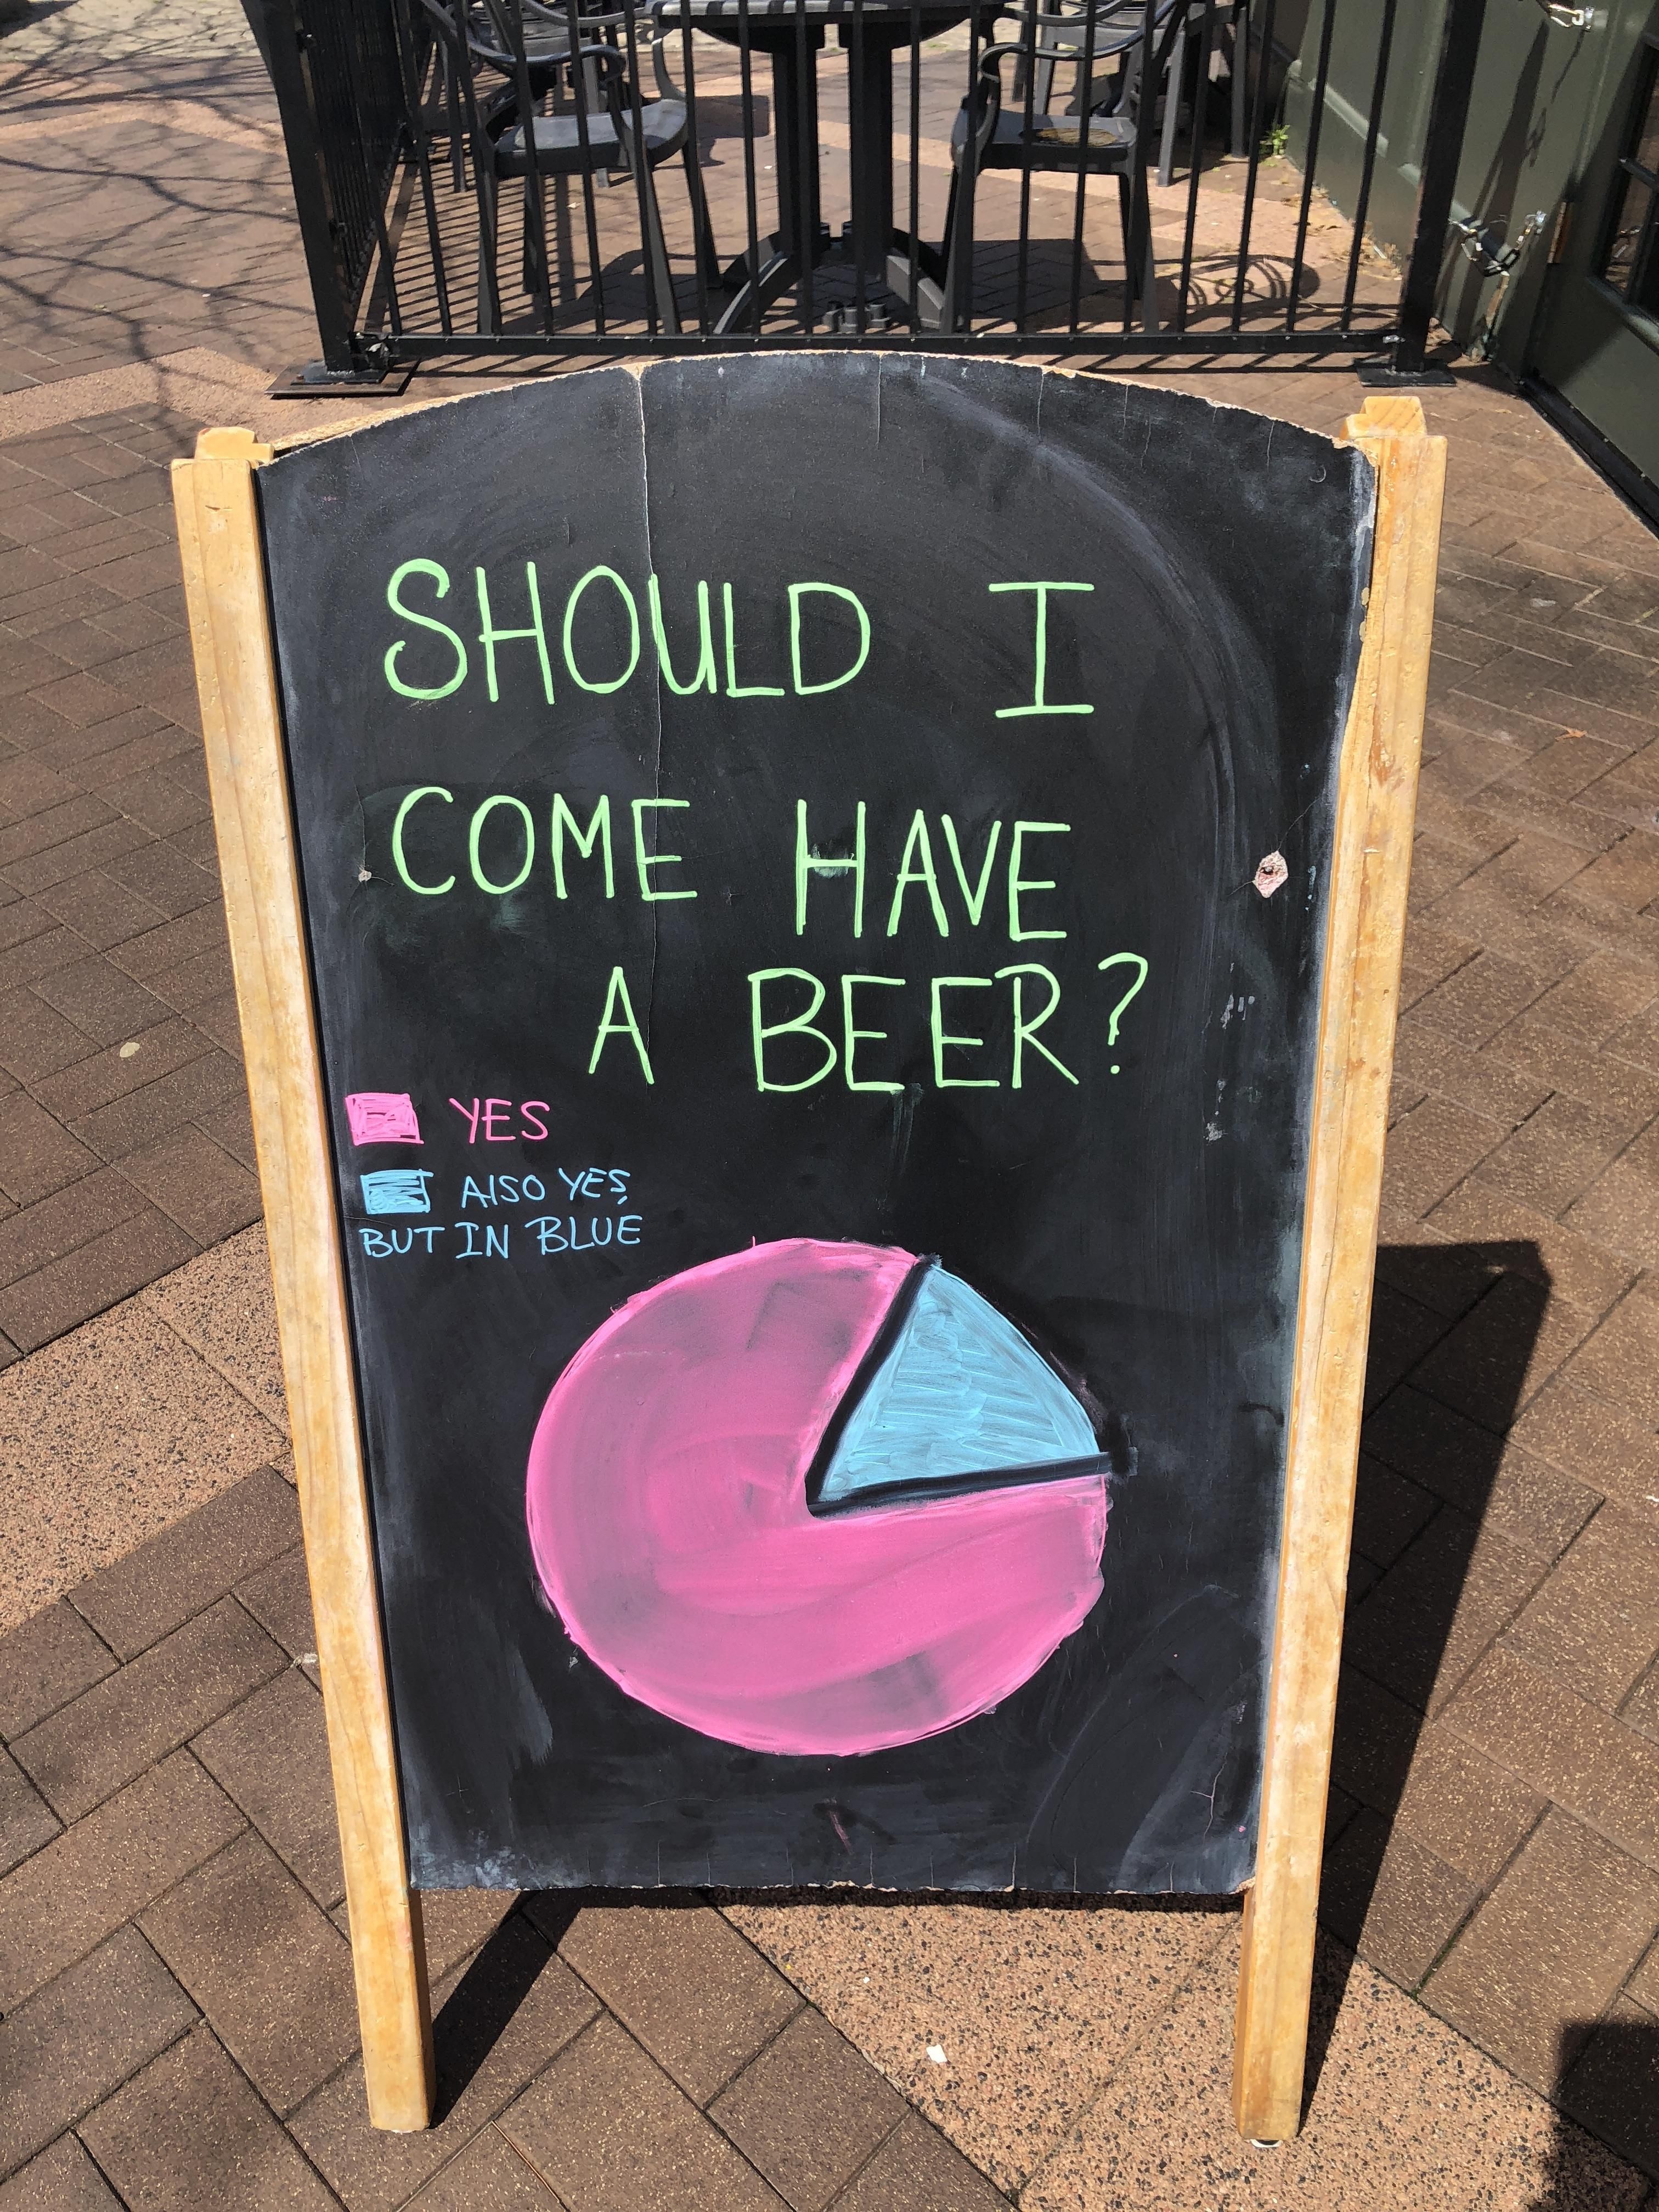 SHOULD I
COME HAVE
A BEER?
YES
AlSO YES,
BUT IN BLUE